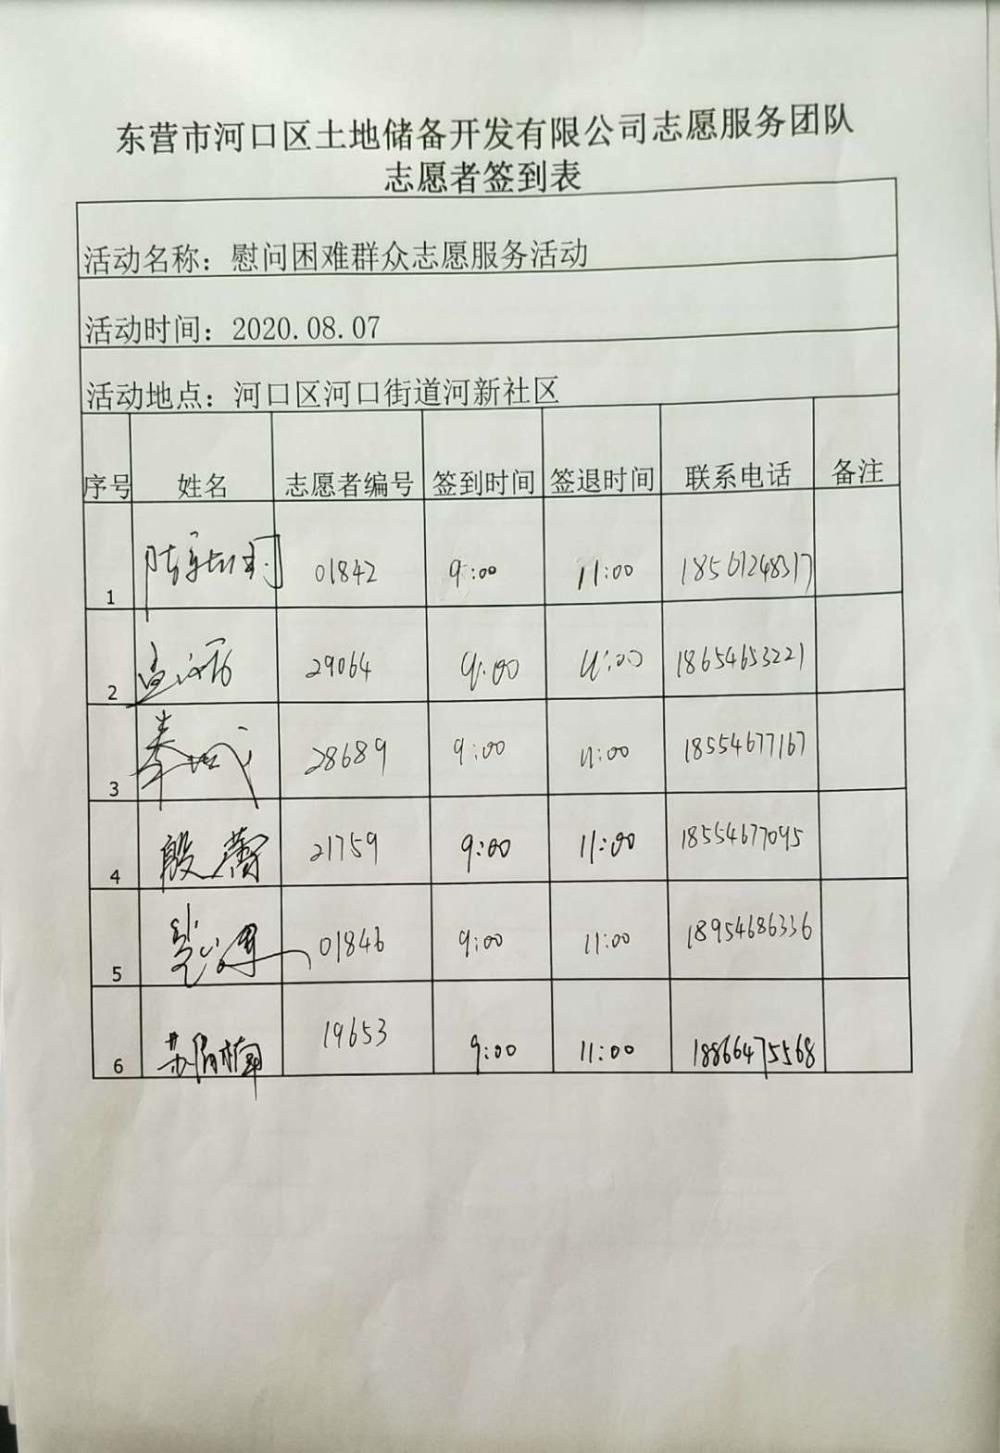 东营市河口区土地储备开发有限公司志愿服务团队
志愿者签到表
活动名称：慰问困难群众志愿服务活动
活动时间：2020.08.07
活动地点：河口区河口街道河新社区
序号 姓名 志愿者编号 签到时间 签退时间 联系电话 备注
1 01842 9:00 11:00 18561248317
2 29064 9:00 11:00 18654653221
3 28689 9:00 11:00 18554677167
4 殷蕾 21759 9:00 11:00 18554677095
5 01846 9:00 11:00 18954686336
6 19653 9:00 11:00 18866475568